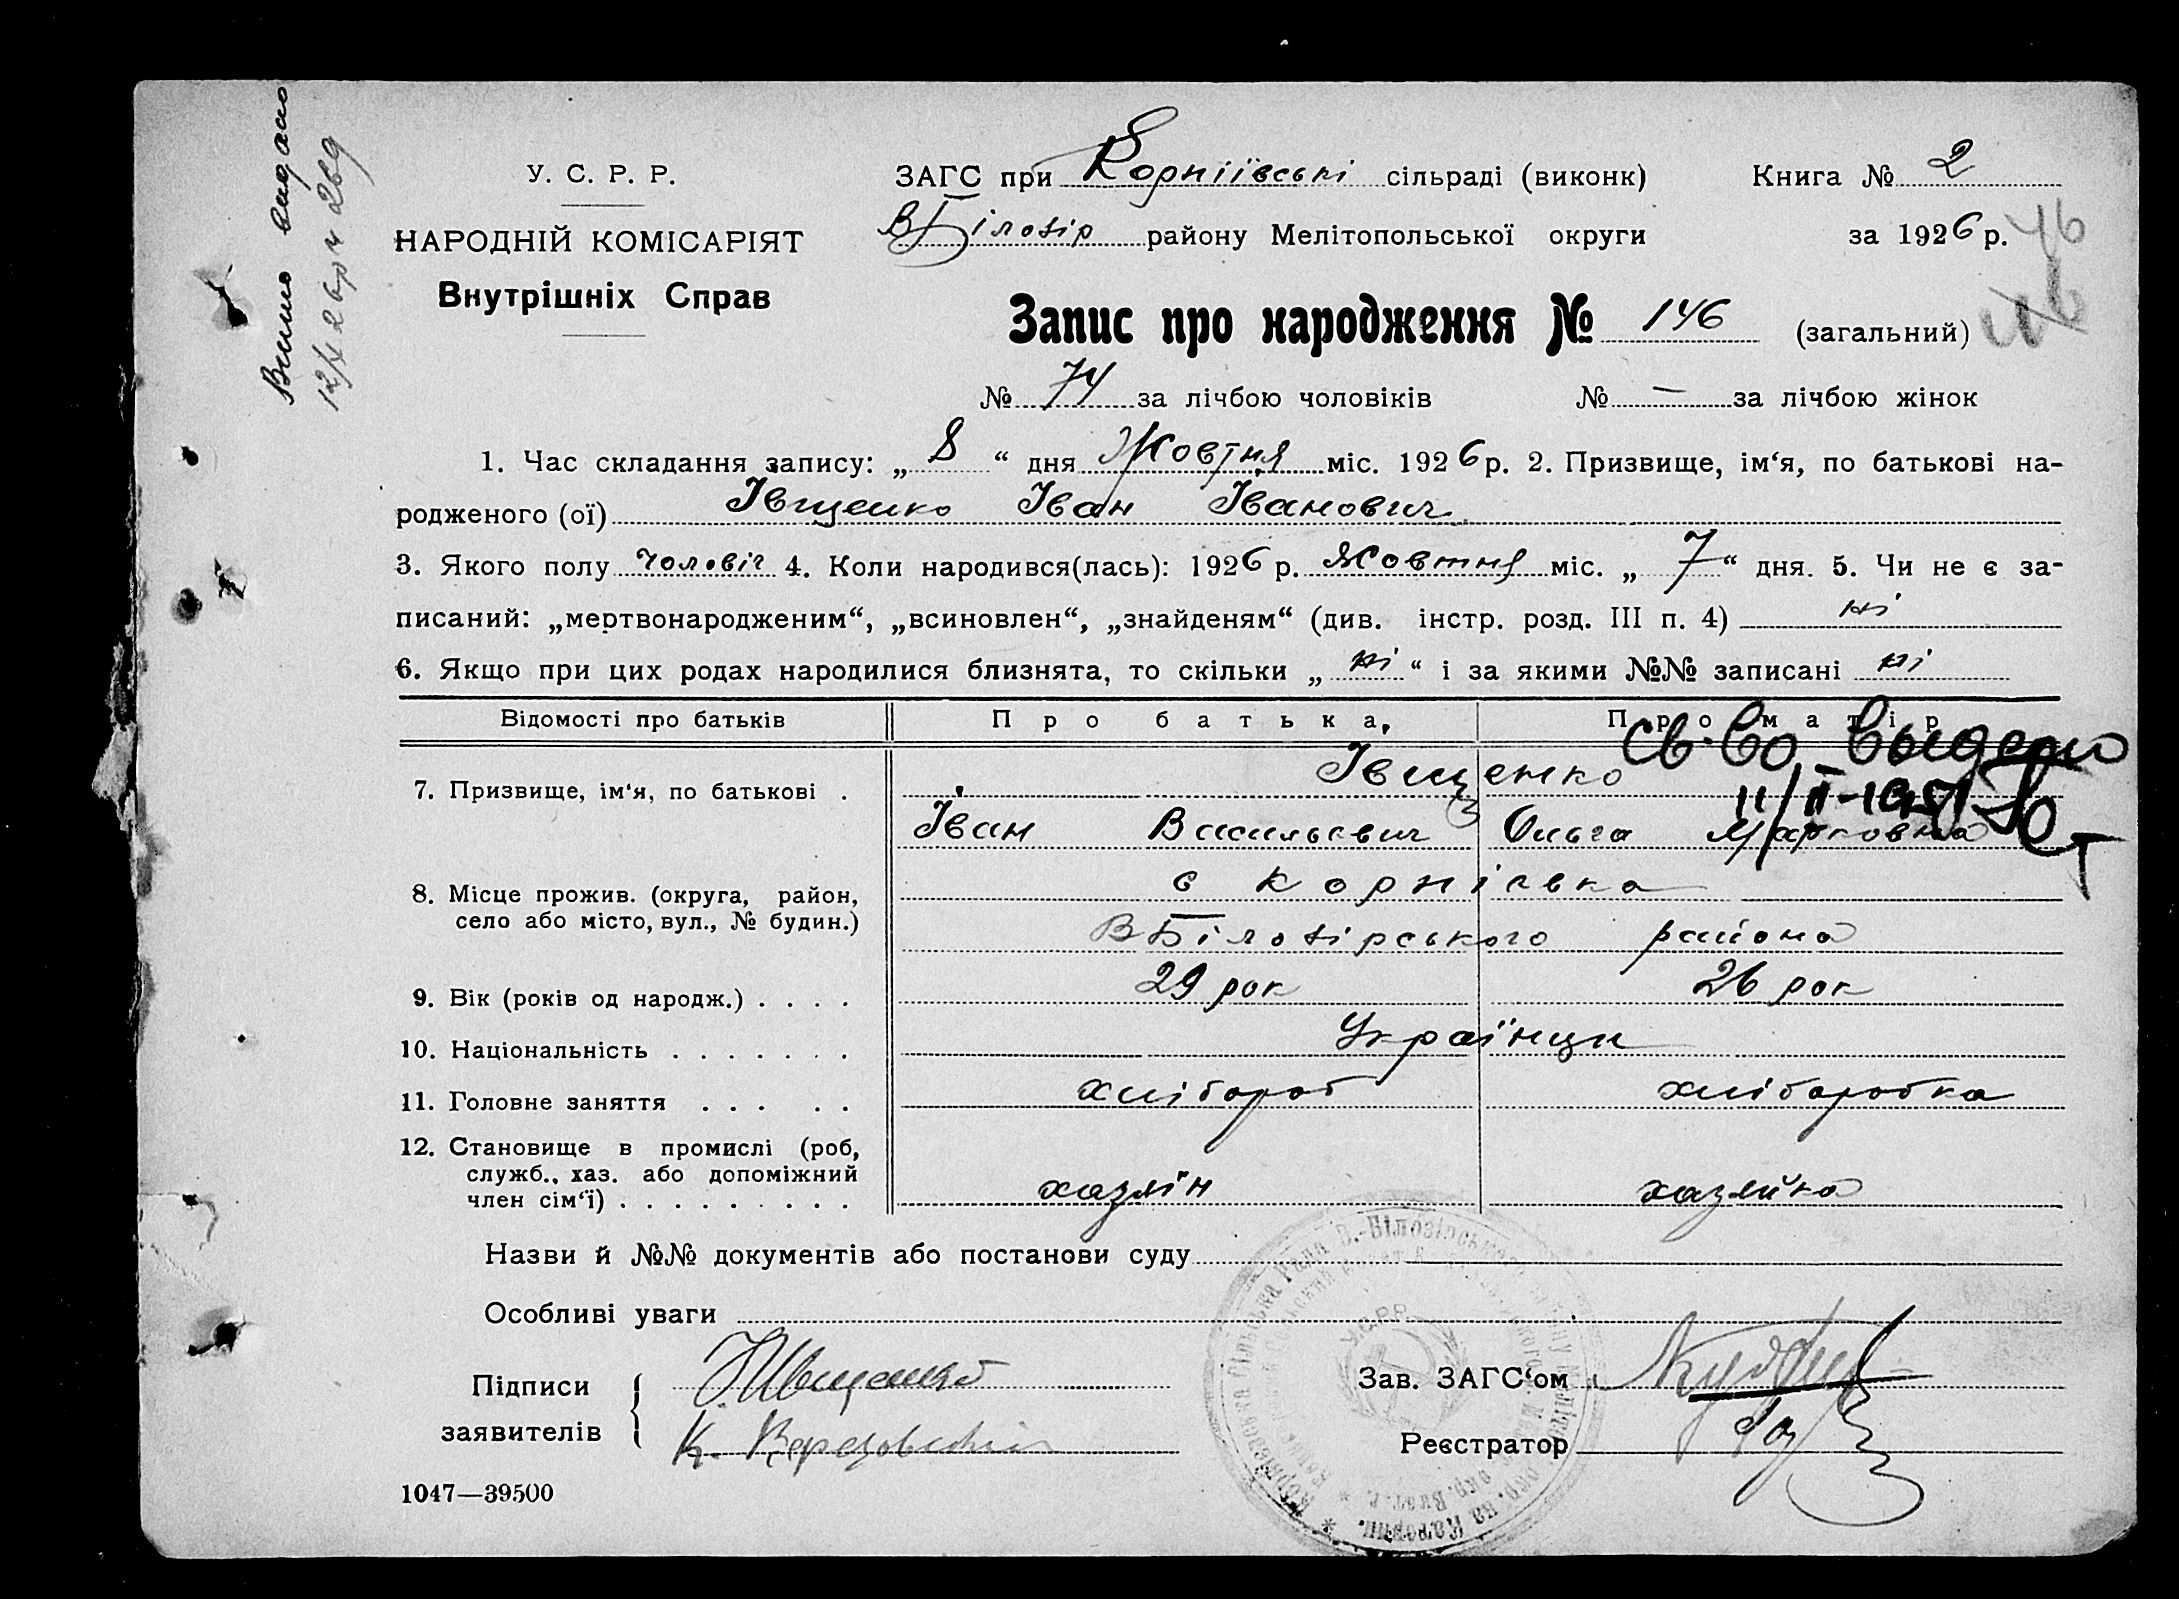 Випис видано
У. С. Р. Р.
НАРОДНІЙ КОМІСАРІЯТ
Внутрішніх Справ
ЗАГС при Корніївські сільраді (виконк)
Книга № 2
ВБілозір району Мелітопольської округи
за 1926 р.
46
Запис про народження № 146 (загальний)
№ 74 за лічбою чоловіків № — за лічбою жінок
1. Час складання запису: „ 8 “ дня Жовтня міс. 1926 р. 2. Призвище, ім‘я, по батькові на-
родженого (ої) Івщенко Іван Іванович
3. Якого полу чоловіч 4. Коли народився(лась): 1926 р. Жовтня міс. „ 7 “ дня. 5. Чи не є за-
писаний: „мертвонародженим“, „всиновлен“, „знайденям“ (див. інстр. розд. III п. 4) ні
6. Якщо при цих родах народилися близнята, то скільки „ ні “ і за якими №№ записані ні
Відомості про батьків Про батька, Про матір
Св-во выдано
11/II-1951
7. Призвище, ім‘я, по батькові . Івщенко
Іван Васильевич Ольга Марковна
8. Місце прожив. (округа, район, с Корніевка
село або місто, вул., № будин.) ВБілозірського района
9. Вік (років од народж.) . . . . 29 рок 26 рок
10. Національність . . . . . . . Українци
11. Головне заняття . . . . . хлібороб хлібаробка
12. Становище в промислі (роб,
служб., хаз. або допоміжний
член сім‘ї) . . . . . . . . . хазяїн хазяйка
Назви й №№ документів або постанови суду
Особливі уваги
У.С.Р.Р.
Підписи Івщенко
заявителів К.
Зав. ЗАГС‘ом
Реєстратор
1047—39500